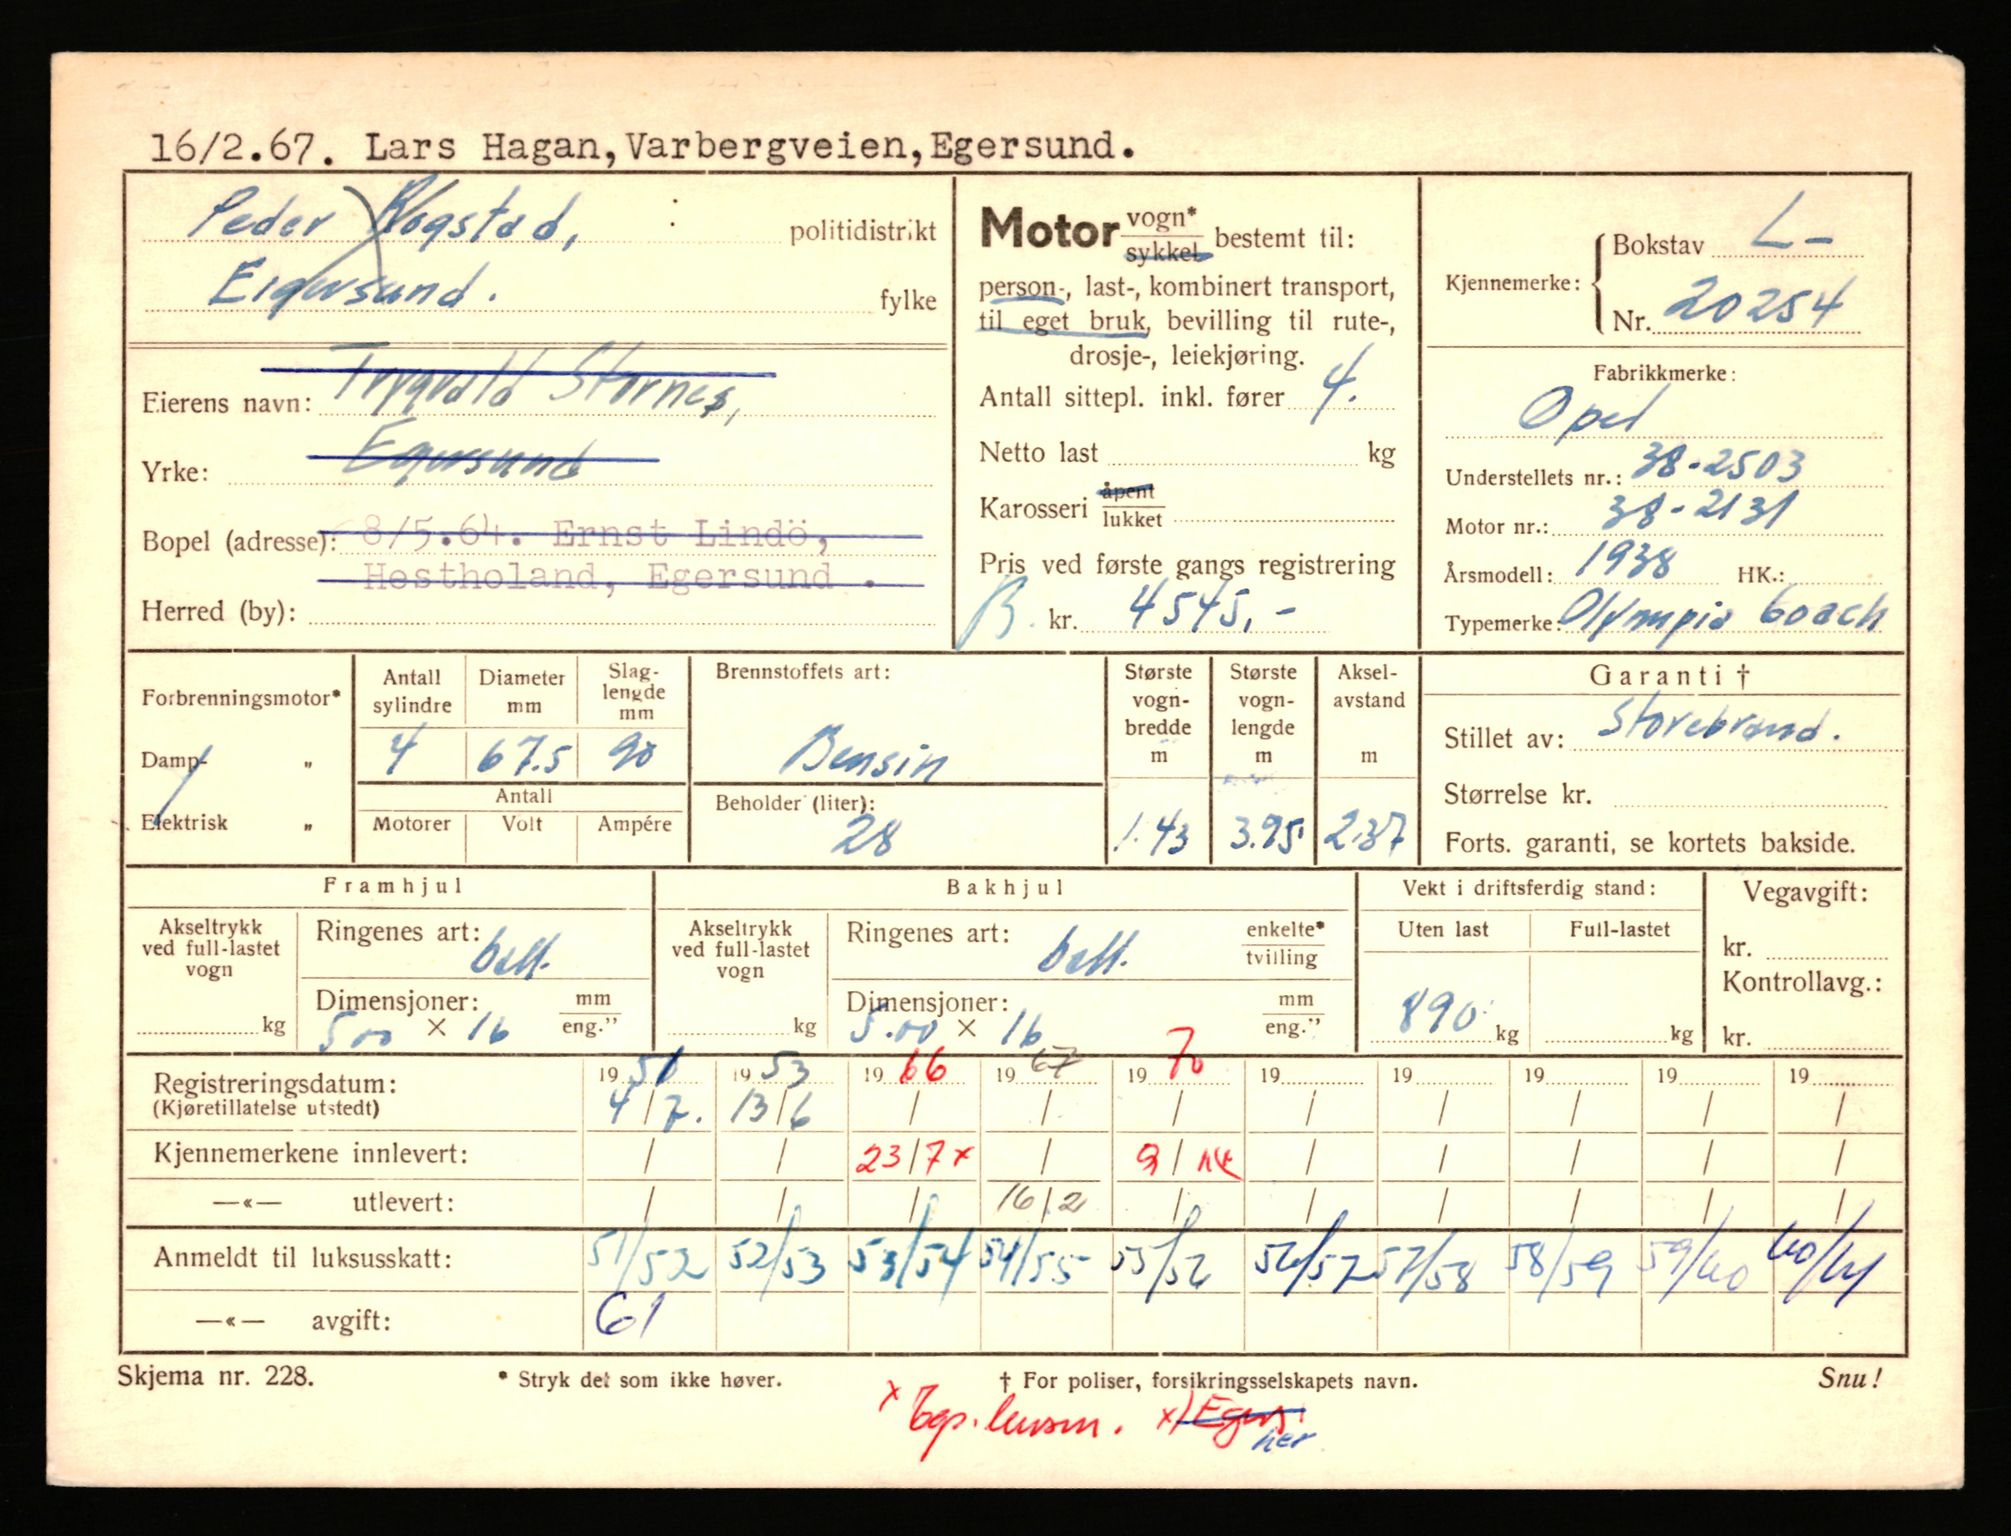 16/2.67. Lars Hagan, Varbergveien, Egersund.
Peder Rogstad, politidistrikt
Eigersund. fylke
Eierens navn: Trygvald Stornes,
Yrke: Egersund
Bopel (adresse): 8/5.64. Ernst Lindö,
Hestholand, Egersund .
Herred (by):
Motor vogn* sykkel bestemt til:
person-, last-, kombinert transport,
til eget bruk, bevilling til rute-,
drosje-, leiekjøring.
Antall sittepl. inkl. fører 4.
Netto last kg
Karosseri åpent lukket
Pris ved første gangs registrering
B. kr. 4545,-
Kjennemerke: Bokstav L-
Nr. 20254
Fabrikkmerke:
Opel
Understellets nr.: 38-2503
Motor nr.: 38-2131
Årsmodell: 1938 HK.:
Typemerke: Olympia coach
Forbrenningsmotor*
Damp- "
Elektrisk "
Antall sylindre Diameter mm Slag-lengde mm
4 67.5 90
Antall
Motorer Volt Ampére
Brennstoffets art:
Bensin
Beholder (liter):
28
Største vogn-bredde m Største vogn-lengde m Aksel-avstand m
1.43 3.95 2.37
Garanti †
Stillet av: Storebrand.
Størrelse kr.
Forts. garanti, se kortets bakside.
Framhjul
Akseltrykk ved full-lastet vogn
kg
Ringenes art: ball.
Dimensjoner: mm eng."
5.00 × 16
Bakhjul
Akseltrykk ved full-lastet vogn
kg
Ringenes art: ball. enkelte* tvilling
Dimensjoner: mm eng."
5.00 × 16
Vekt i driftsferdig stand:
Uten last Full-lastet
890 kg kg
Vegavgift:
kr.
Kontrollavg.:
kr.
Registreringsdatum: 1951 1953 1966 1967 1970 19 19 19 19 19
(Kjøretillatelse utstedt) 4/7. 13/6 / / / / / / / /
Kjennemerkene innlevert: / / 23/7 x / 9/ / / / / /
—«— utlevert: / / / 16/2 / / / / / /
Anmeldt til luksusskatt: 51/52 52/53 53/54 54/55 55/56 56/57 57/58 58/59 59/60 60/61
—«— avgift: 61
Skjema nr. 228. * Stryk det som ikke høver. † For poliser, forsikringsselskapets navn. Snu!
x x) Egers.
her